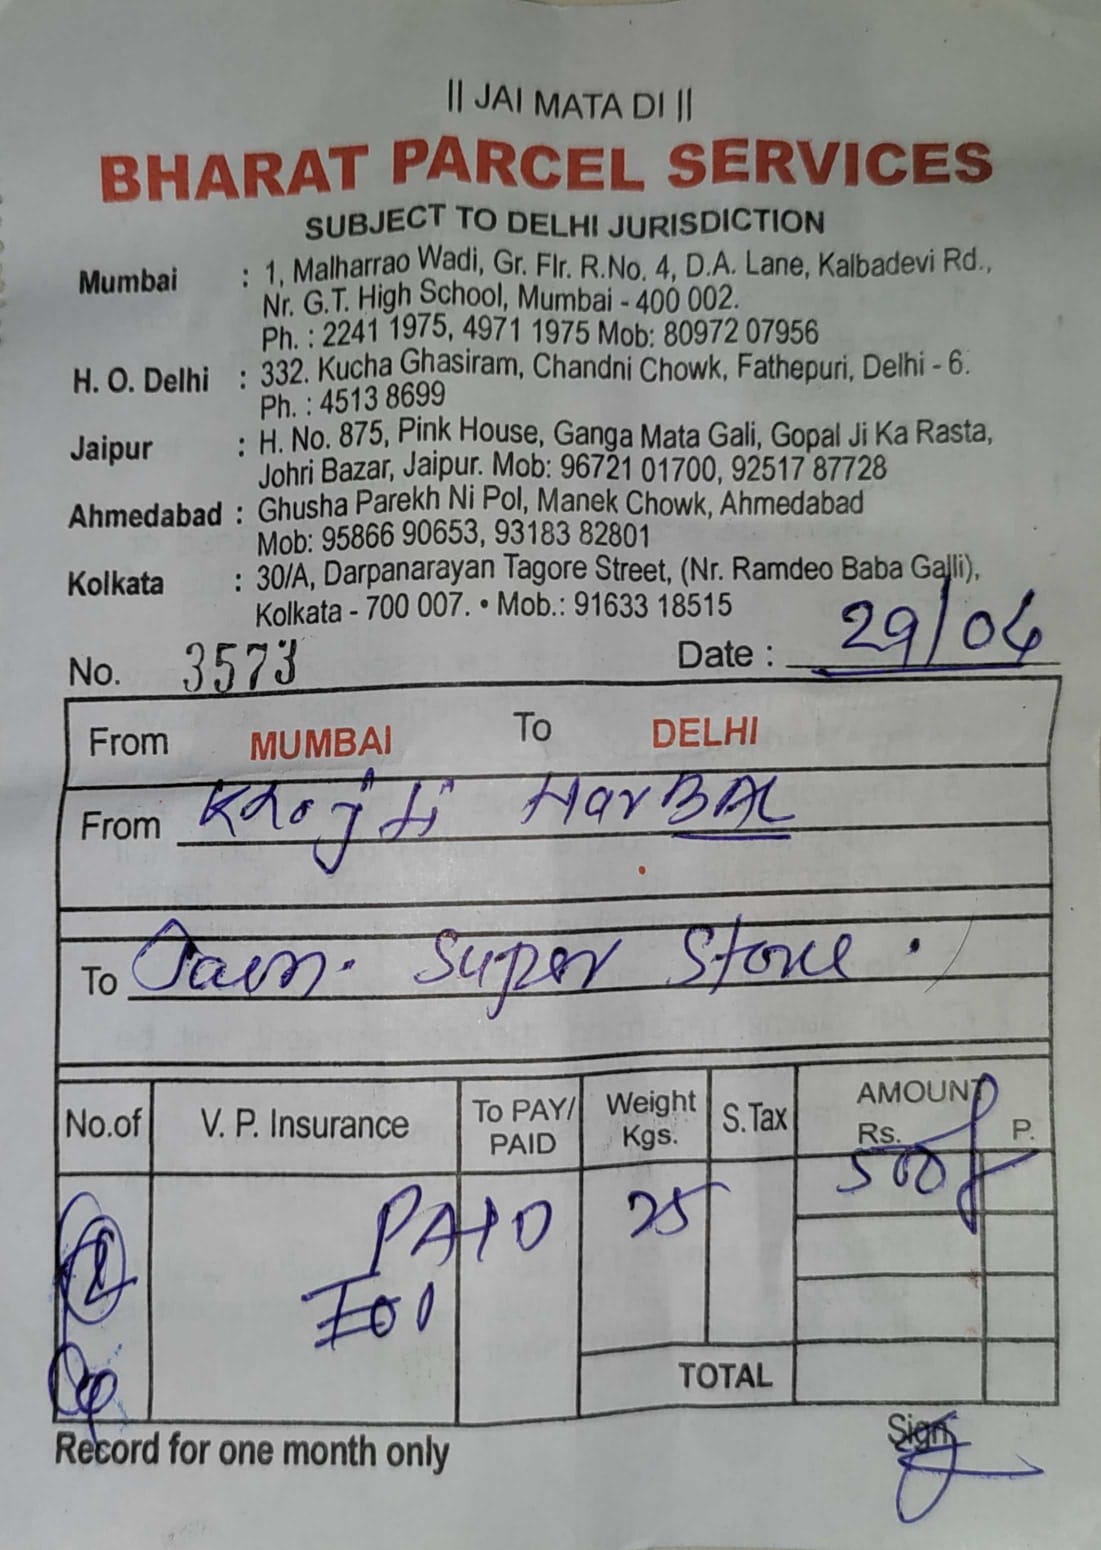 || JAI MATA DI ||
BHARAT PARCEL SERVICES
SUBJECT TO DELHI JURISDICTION
Mumbai : 1, Malharrao Wadi, Gr. Flr. R.No. 4, D.A. Lane, Kalbadevi Rd.,
Nr. G.T. High School, Mumbai - 400 002.
Ph. : 2241 1975, 4971 1975 Mob: 80972 07956
H. O. Delhi : 332. Kucha Ghasiram, Chandni Chowk, Fathepuri, Delhi - 6.
Ph. : 4513 8699
Jaipur : H. No. 875, Pink House, Ganga Mata Gali, Gopal Ji Ka Rasta,
Johri Bazar, Jaipur. Mob: 96721 01700, 92517 87728
Ahmedabad : Ghusha Parekh Ni Pol, Manek Chowk, Ahmedabad
Mob: 95866 90653, 93183 82801
Kolkata : 30/A, Darpanarayan Tagore Street, (Nr. Ramdeo Baba Galli),
Kolkata - 700 007. • Mob.: 91633 18515
No. 3573 Date : 29/04
From MUMBAI To DELHI
From HarBAL
To Jain. Super Store .
No.of V. P. Insurance To PAY/ PAID Weight Kgs. S.Tax AMOUNT Rs. P.
PAID 25 500
TOTAL
Record for one month only Sign